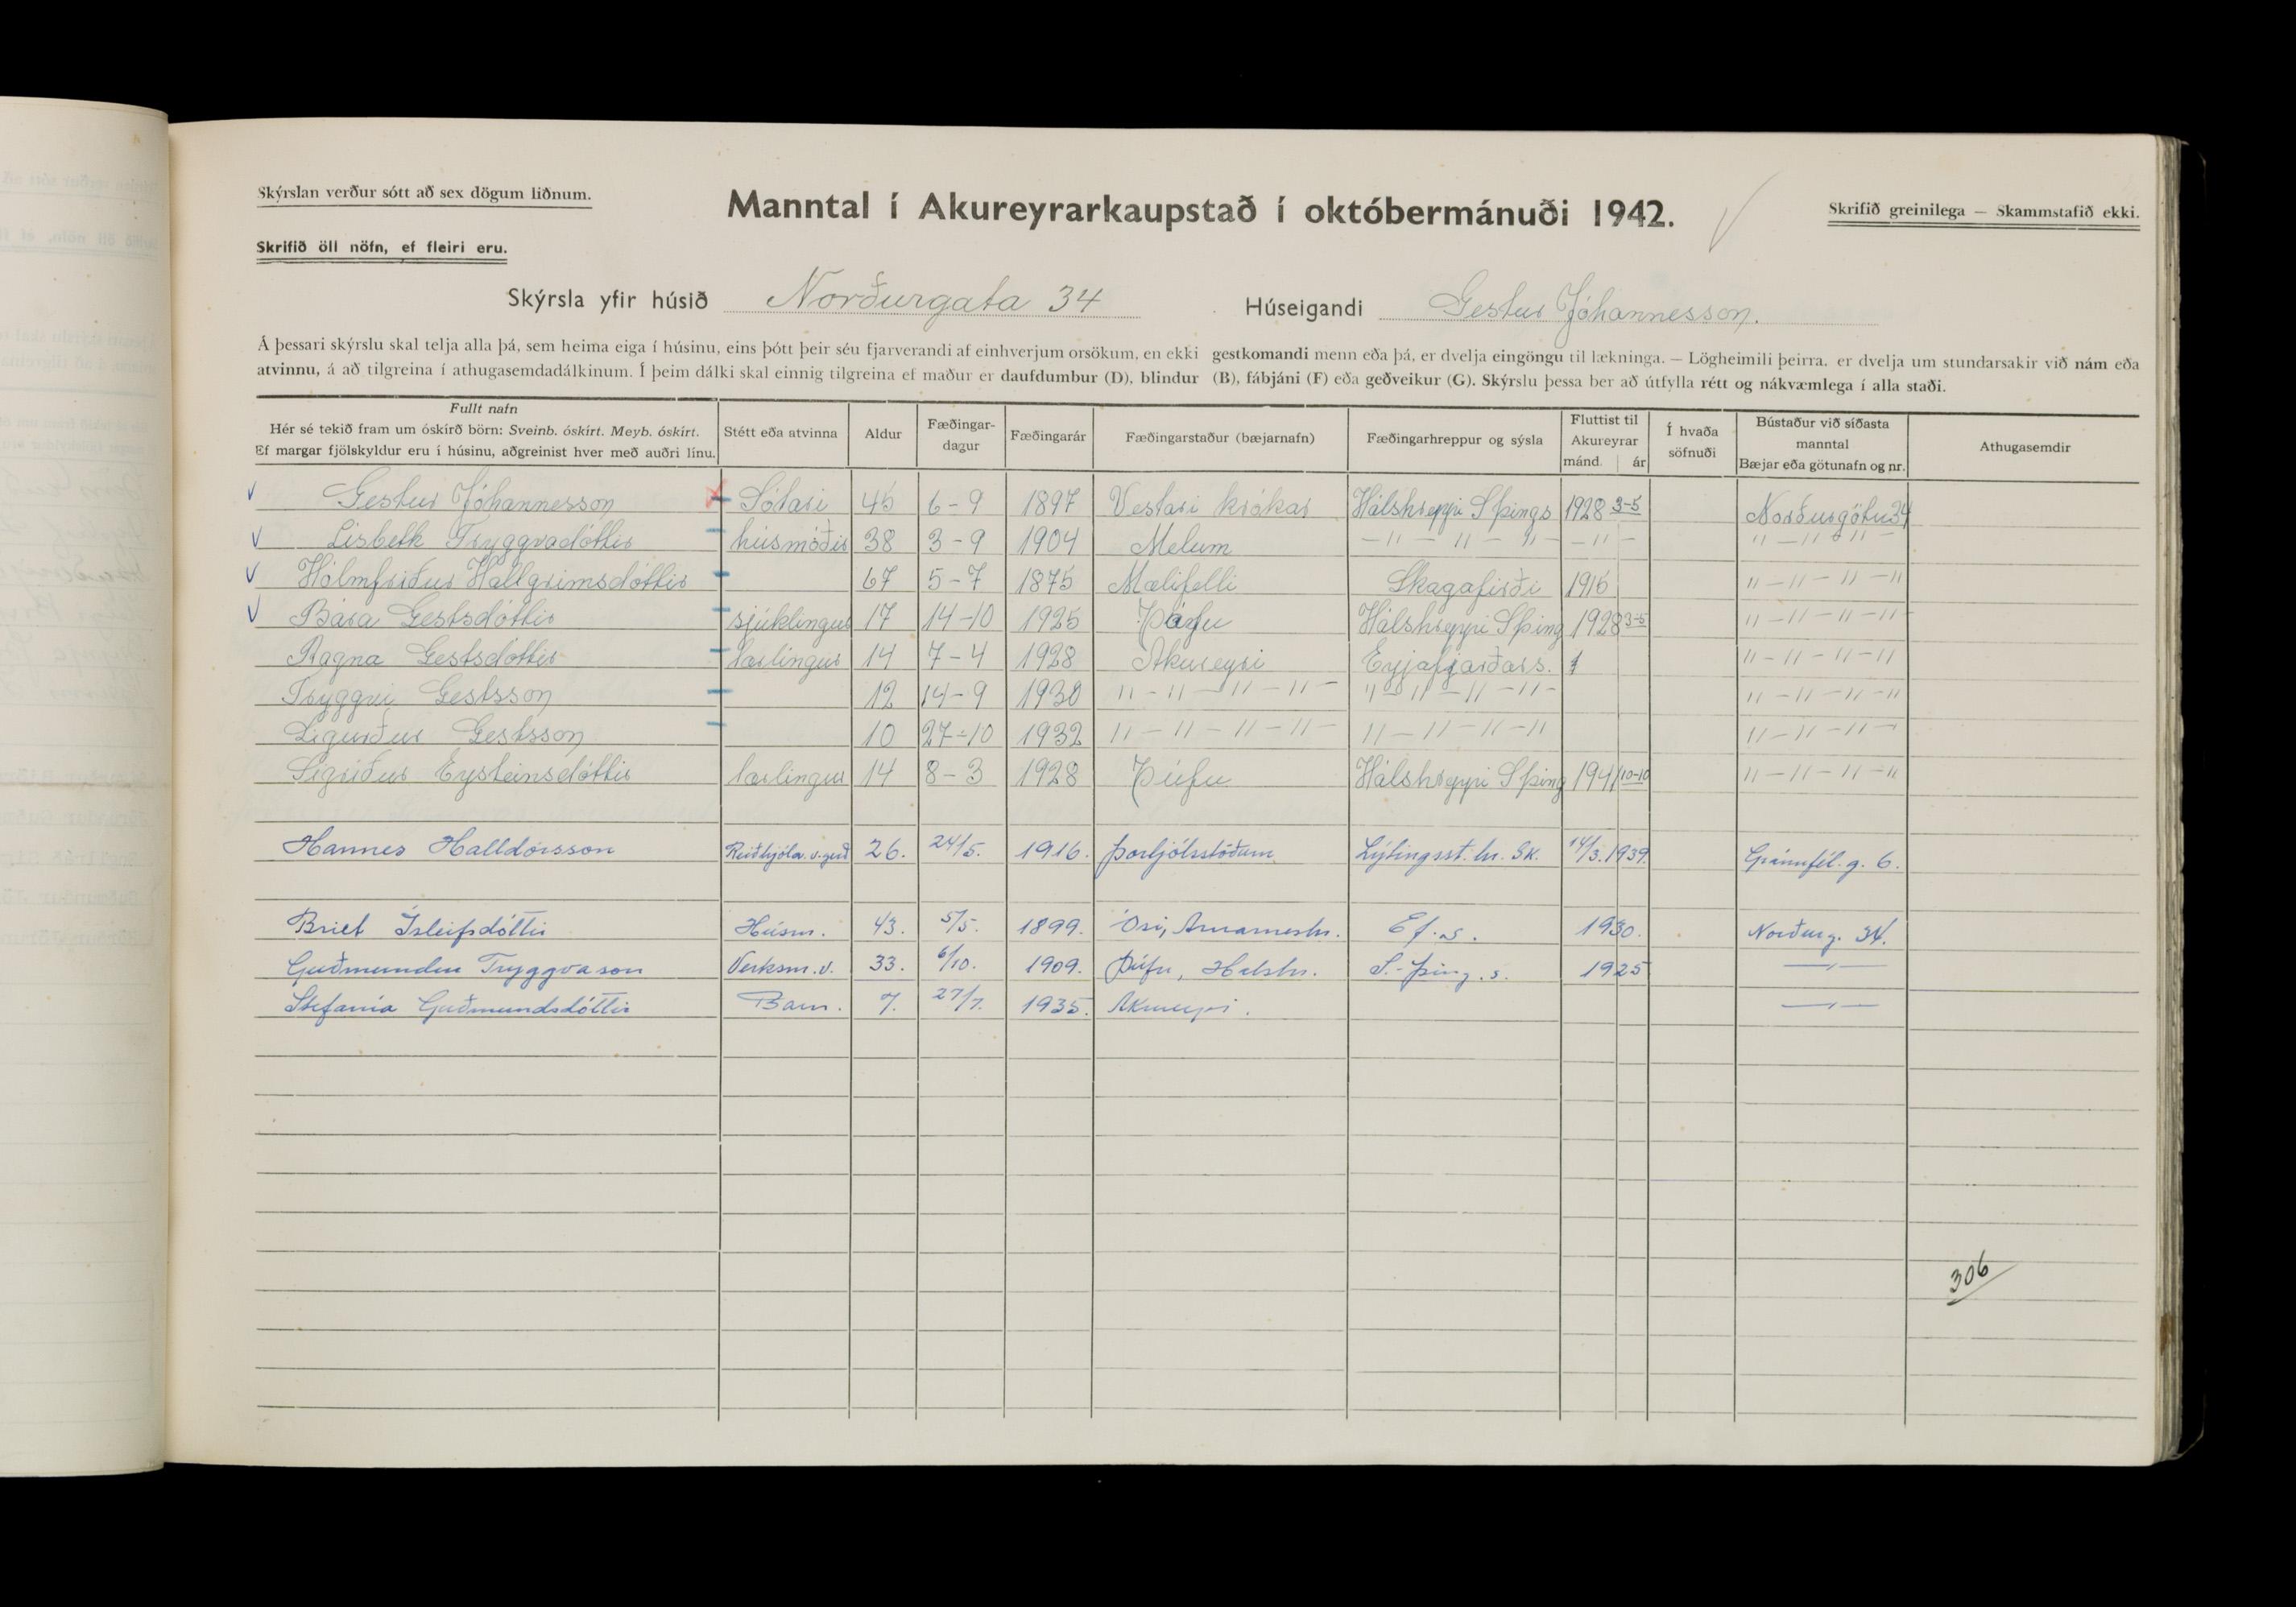 Skýrslan verður sótt að sex dögum liðnum.
Manntal í Akureyrarkaupstað í októbermánuði 1942.
Skrifið greinilega — Skammstafið ekki.
Skrifið öll nöfn, ef fleiri eru.
Skýrsla yfir húsið Norðurgata 34 Húseigandi Gestur Jóhannesson.
Á þessari skýrslu skal telja alla þá, sem heima eiga í húsinu, eins þótt þeir séu fjarverandi af einhverjum orsökum, en ekki gestkomandi menn eða þá, er dvelja eingöngu til lækninga. — Lögheimili þeirra. er dvelja um stundarsakir við nám eða
atvinnu, á að tilgreina í athugasemdadálkinum. Í þeim dálki skal einnig tilgreina ef maður er daufdumbur (D), blindur (B), fábjáni (F) eða geðveikur (G). Skýrslu þessa ber að útfylla rétt og nákvæmlega í alla staði.
Fullt nafn
Hér sé tekið fram um óskírð börn: Sveinb. óskírt. Meyb. óskírt.
Ef margar fjölskyldur eru í húsinu, aðgreinist hver með auðri línu.
Stétt eða atvinna
Aldur
Fæðingar-
dagur
Fæðingarár
Fæðingarstaður (bæjarnafn)
Fæðingarhreppur og sýsla
Fluttist til
Akureyrar
mánd. ár
Í hvaða
söfnuði
Bústaður við síðasta
manntal
Bæjar eða götunafn og nr.
Athugasemdir
Gestur Jóhannesson Sótari 45 6-9 1897 Vestari krókar Hálshreppi S þings 1928 3-5 Norðurgötu 34
Lisbeth Tryggvadóttir húsmóðir 38 3-9 1904 Melum —"— " — "— —"— "—"—"—
Hólmfríður Hallgrímsdóttir 67 5-7 1875 Mælifelli Skagafirði 1916 "—"—"—"
Bára Gestsdóttir sjúklingur 17 14-10 1925 Hálshreppi S þing 1928 3-5 "—"—"—"
Ragna Gestsdóttir lærlingur 14 7-4 1928 Akureyri Eyjafjarðars. "—"—"—"
Tryggvi Gestsson 12 14-9 1930 "—"—"—"— "—"—"—"— "—"—"—"
Sigurður Gestsson 10 27-10 1932 "—"—"—"— "—"—"—" "—"—"—
Sigríður Eysteinsdóttir lærlingur 14 8-3 1928 Þúfu Hálshreppi S þing 1941 10-10 "—"—"—"
Hannes Halldórsson Reiðhjóla.v.gerð 26. 24/5. 1916. Þorljótsstöðum Lýtingsst.hr. Sk. 14/3. 1939. Gránufél.g. 6.
Briet Ísleifsdóttir Húsm. 43. 5/5. 1899. Ósi, Arnarneshr. Ef.s. 1930. Norðurg. 34.
Guðmundur Tryggvason Verksm.v. 33. 6/10. 1909. Þúfu, Halshr. S.-þing.s. 1925 —"—
Stefanía Guðmundsdóttir Barn. 7. 27/7. 1935. Akureyri. —"—
306